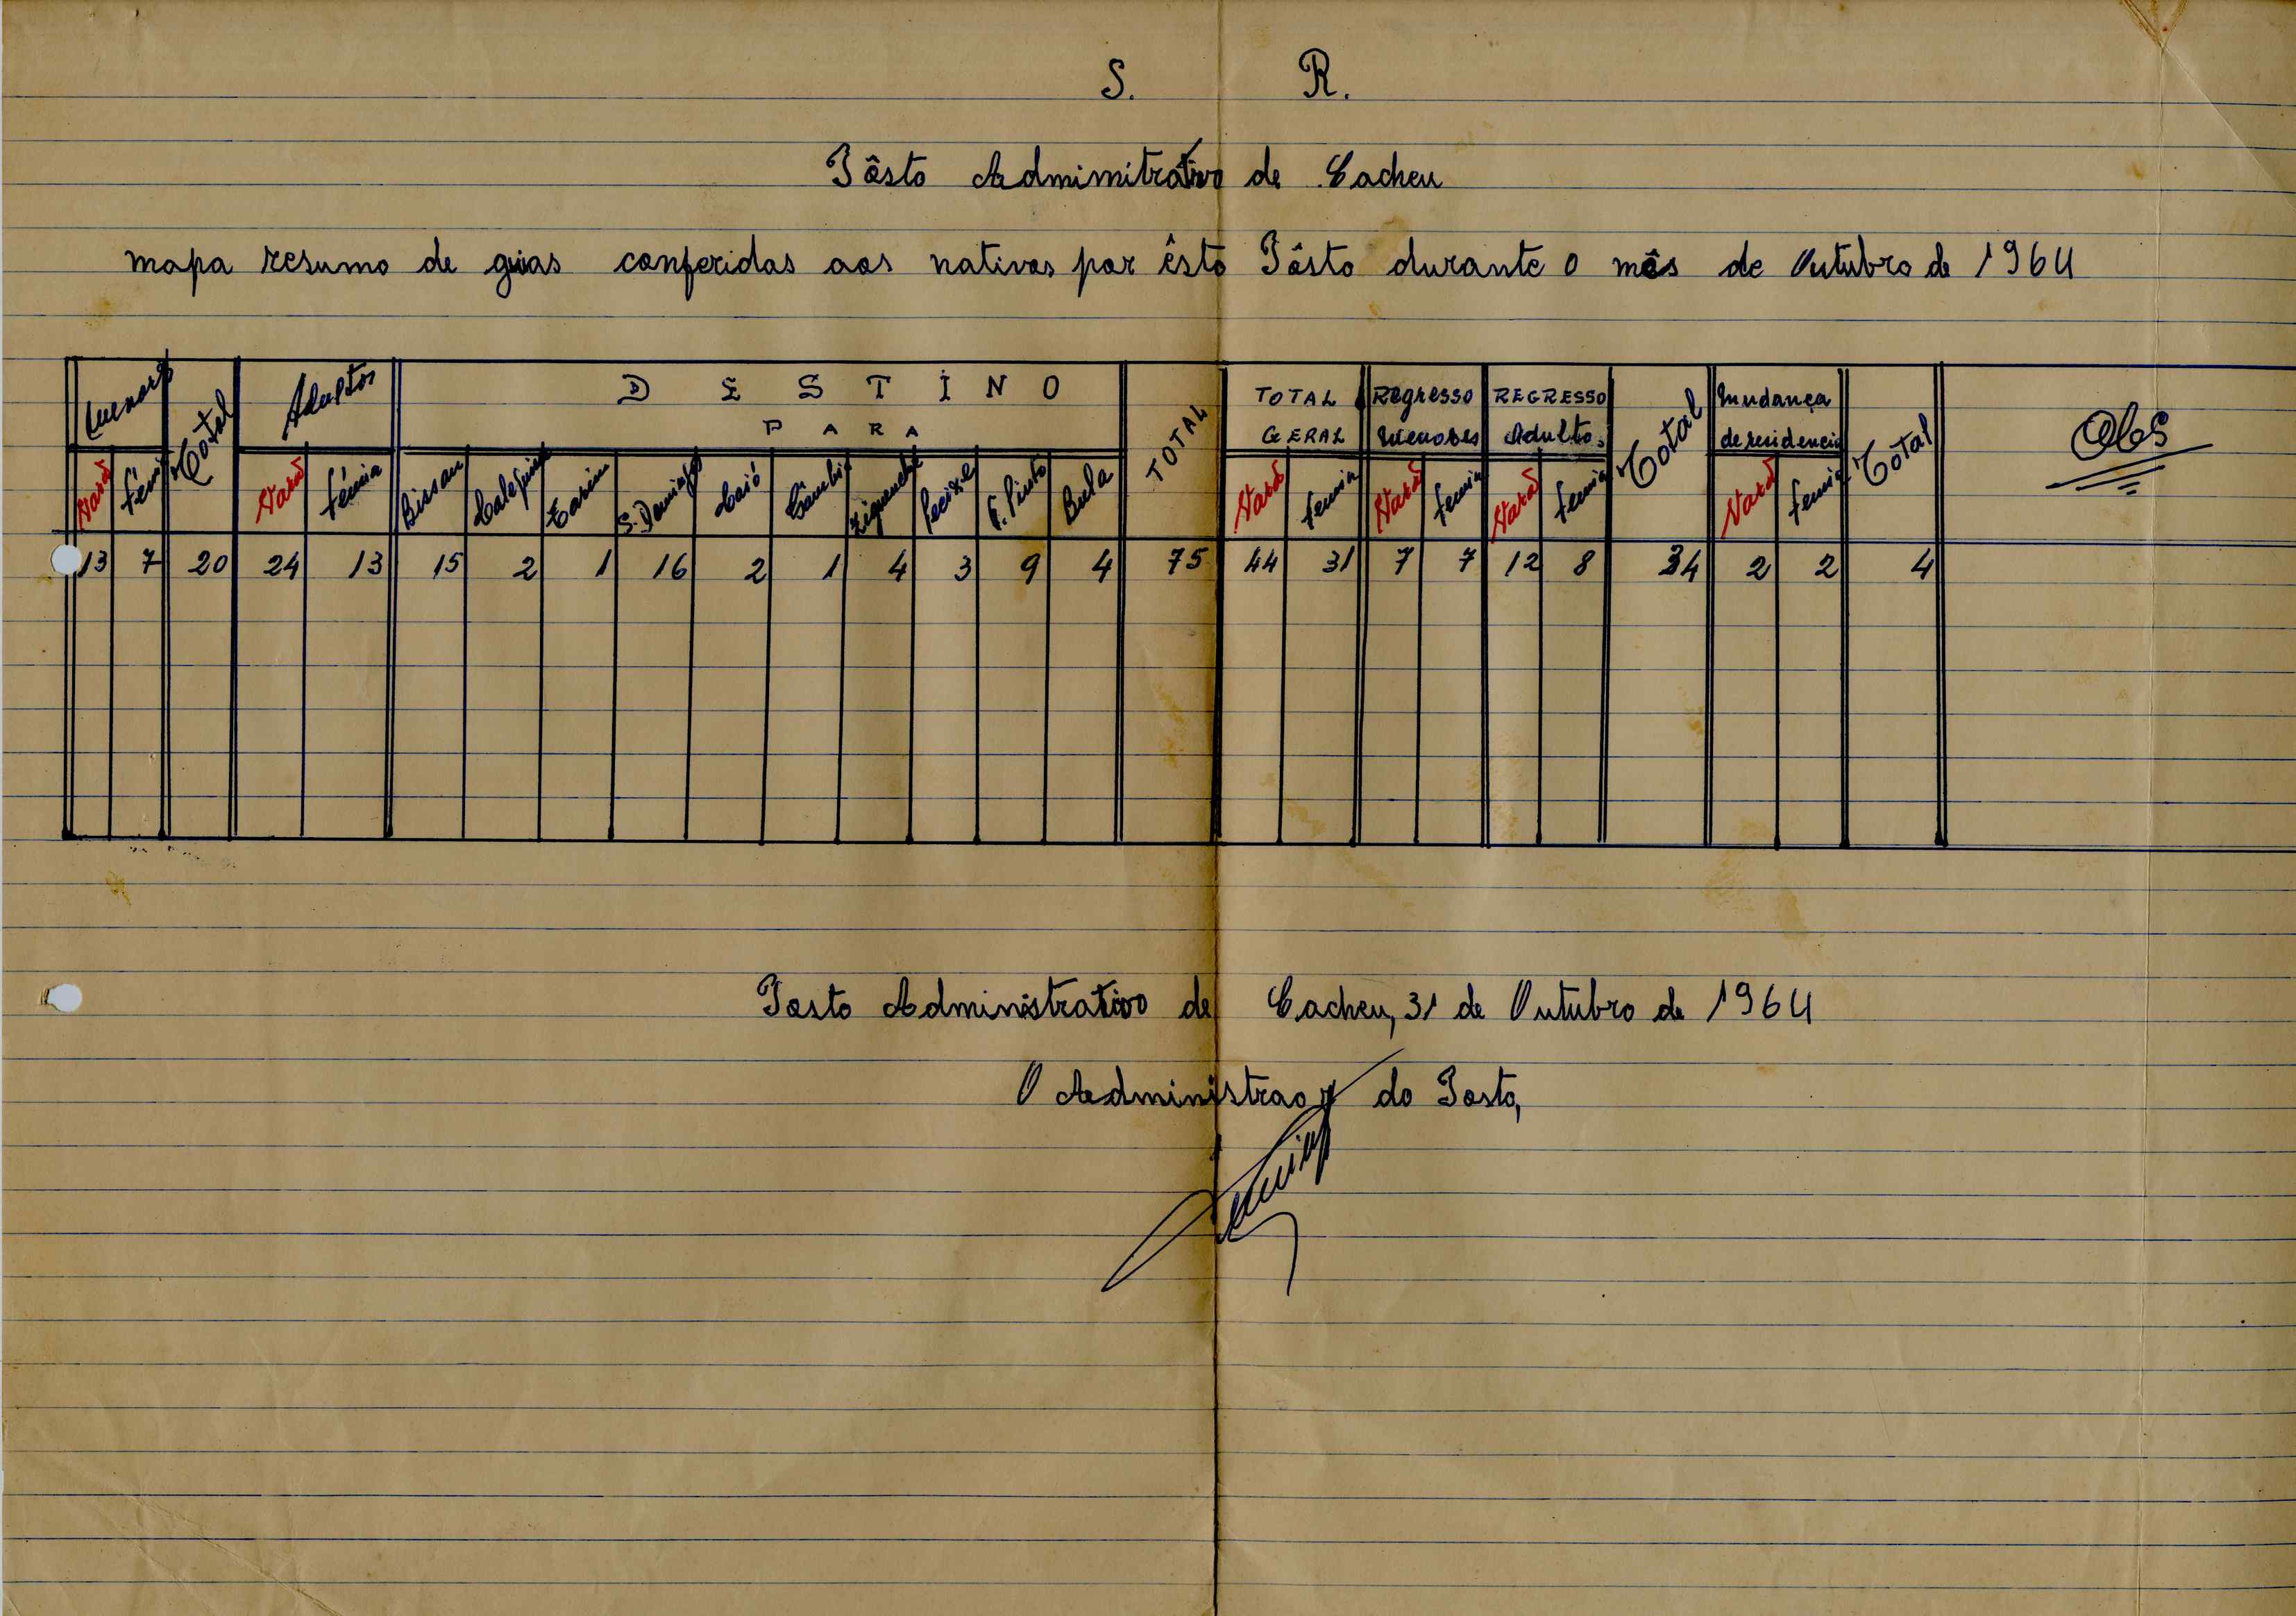 S. R.
Pôsto Admimitrativo de Cacheu
mapa resumo de guias conferidas aos nativos por êsto Pôsto durante o mês de Outubro de 1964
Menores Total Adultos DESTINO PARA TOTAL TOTAL GERAL Regresso Menores REGRESSO Adultos Total Mudança de residencia Total Obs
Varão Fémia Varão Fémia Bissau Calequisse Farim S. Domingos Caió Gâmbia Ziguenchor Pecixe T. Pinto Bula Varão Femia Varão Femia Varão Femia Varão Femia
13 7 20 24 13 15 2 1 16 2 1 4 3 9 4 75 44 31 7 7 12 8 34 2 2 4
Posto Administrativo de Cacheu, 31 de Outubro de 1964
O Administraor do Posto,